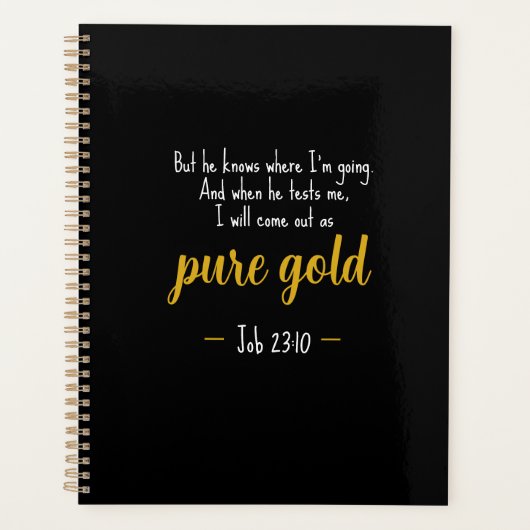 But he knows where I'm going.
And when he tests me,
I will come out as
pure gold
— Job 23:10 —